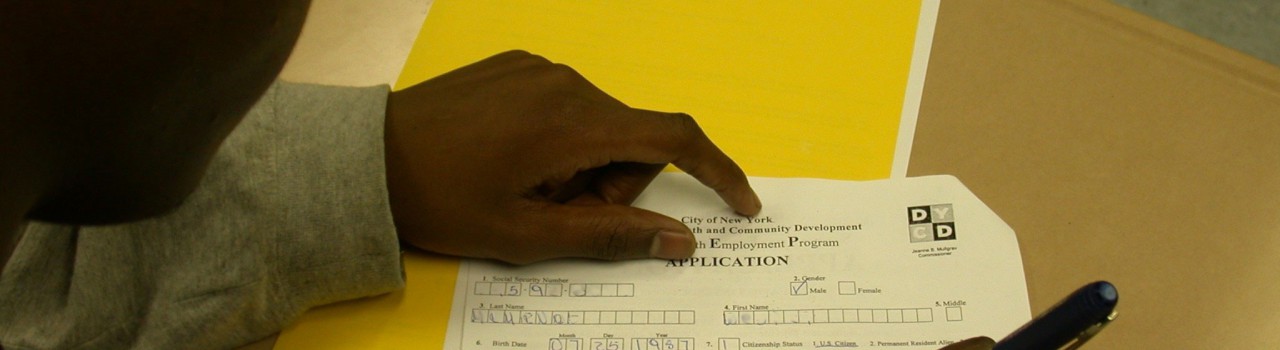 City of New York
th and Community Development
th Employment Program
APPLICATION
D Y
C D
Jeanne B. Mullgrav
Commissioner
1. Social Security Number
2. Gender
Male
Female
3. Last Name
4. First Name
5. Middle
Month Day Year
6. Birth Date
7. 1 Citizenship Status 1. U.S. Citizen 2. Permanent Resident Alien